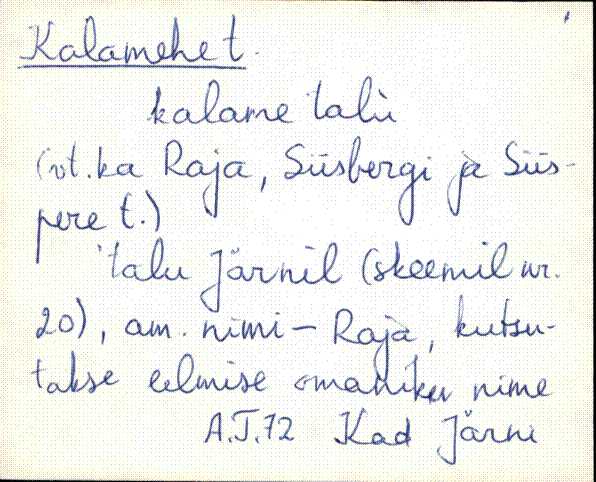 Kalamehe t.
kalame ˋtalù
(vt. ka Raja, Siisbergi ja Siis-
pere t.)
ˋtalu Järnil (skeemil nr.
20), am. nimi – Raja, kutsu-
takse eelmise omaniku nime
A.T.72 Kad Järni